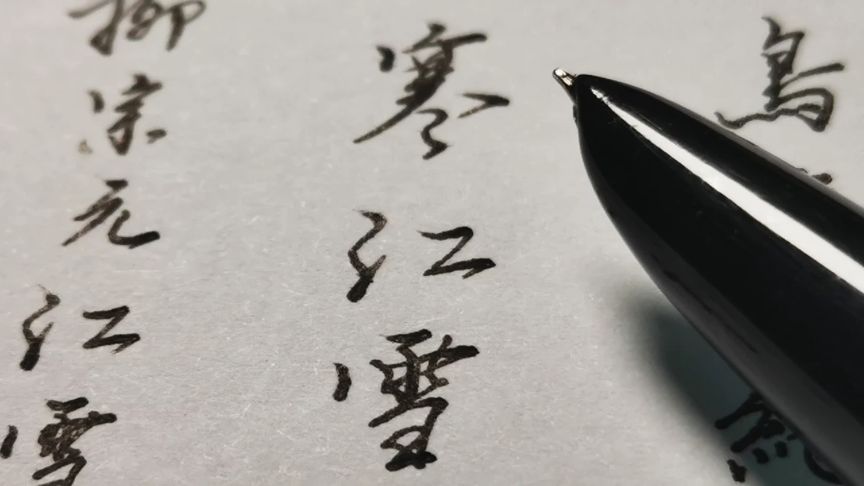 鳥
寒江雪
柳宗元江雪